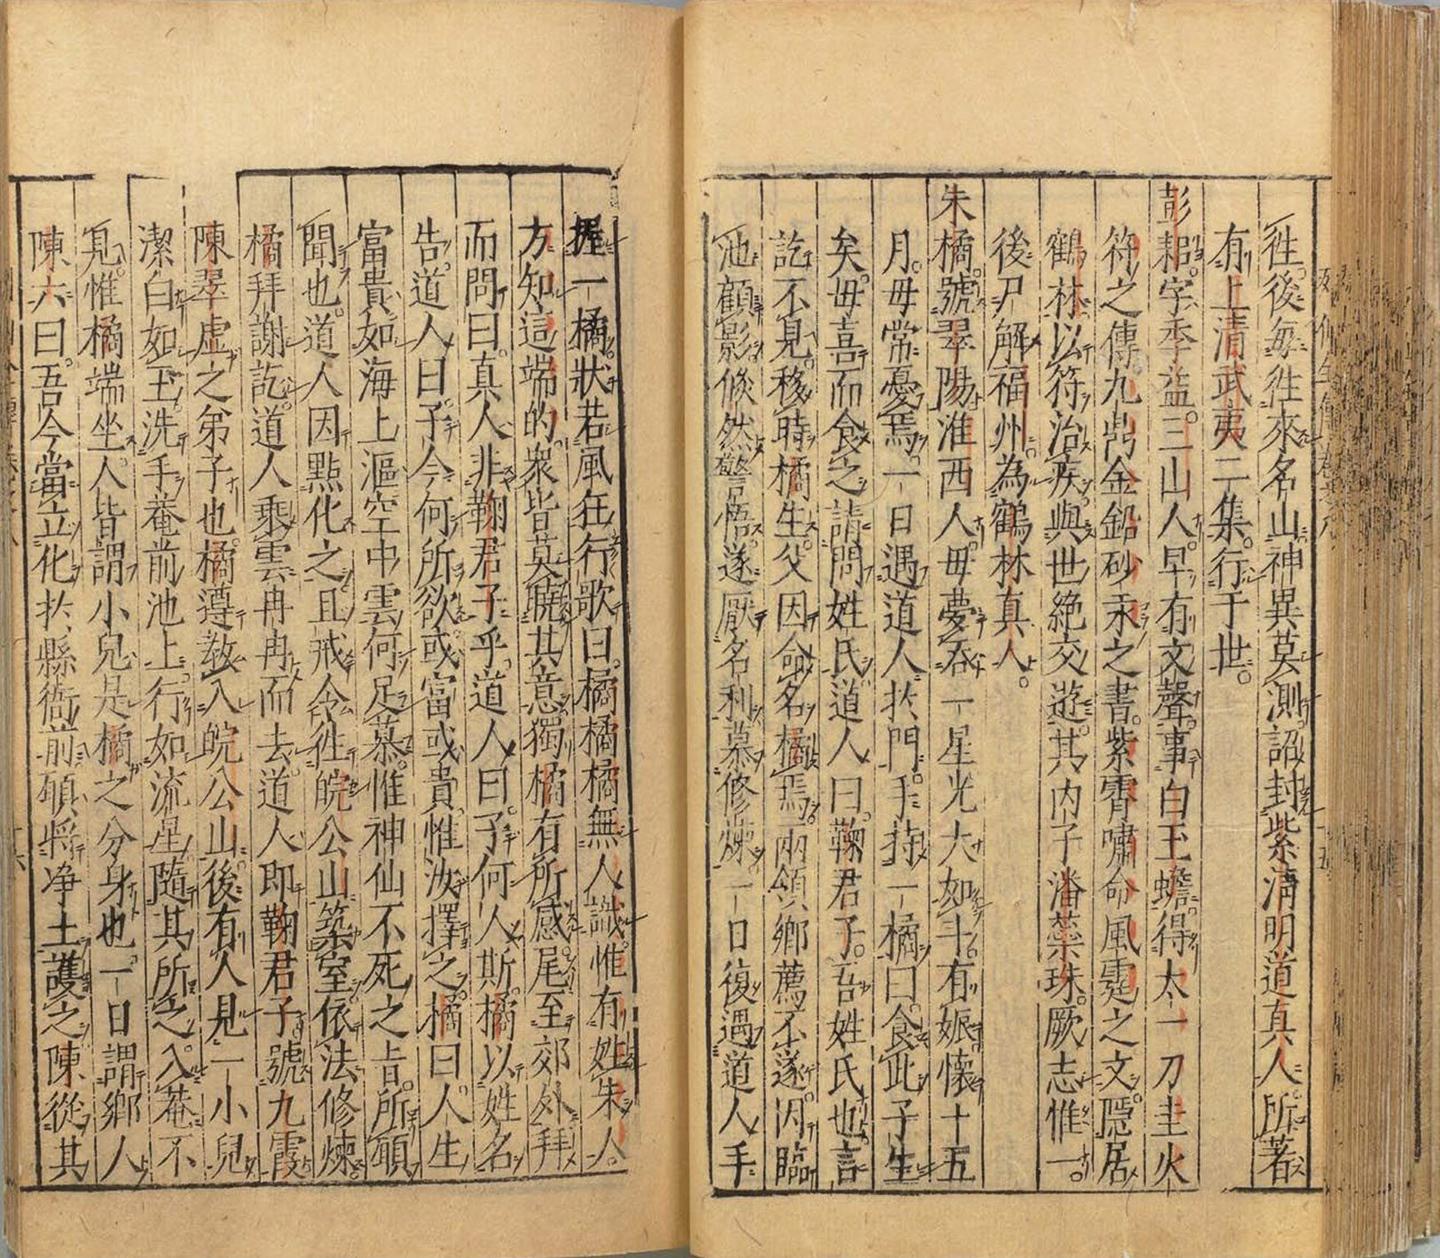 徃後每徃來名山神異莫測詔封紫清明道真人所著
有上清武夷二集行于世
彭耜字季益三山人早有文聲事白玉蟾得太一刀圭火
符之傳九鼎金鉛砂汞之書紫霄嘯命風霆之文隱居
鶴林以符治疾與世絶交遊其内子潘蘂珠厥志惟一
後尸解福州為鶴林真人
朱橘號翠陽淮西人母夢吞一星光大如斗有娠懷十五
月母常憂焉一日遇道人扵門手持一橘曰食此子生
矣母喜而食之請問姓氏道人曰鞠君子吾姓氏也言
訖不見移時橘生父因命名橘焉兩領鄉薦不遂因臨
池顧影倐然警悟遂厭名利慕修煉一日復遇道人手
握一橘狀若風狂行歌曰橘橘橘無人識惟有姓朱人
方知這端的衆皆莫曉其意獨橘有所感尾至郊外拜
而問曰真人非鞠君子乎道人曰子何人斯橘以姓名
告道人曰子今何所欲或富或貴惟汝擇之橘曰人生
富貴如海上漚空中雲何足慕惟神仙不死之旨所願
聞也道人因點化之且戒令徃皖公山築室依法修煉
橘拜謝訖道人乘雲冉冉而去道人即鞠君子號九霞
陳翠虛之弟子也橘遵教入皖公山後有人見一小兒
潔白如玉洗手菴前池上行如流星隨其所之入菴不
見惟橘端坐人皆謂小兒是橘之分身也一日謂鄉人
陳六曰吾今當立化扵縣衙前願將净土護之陳從其